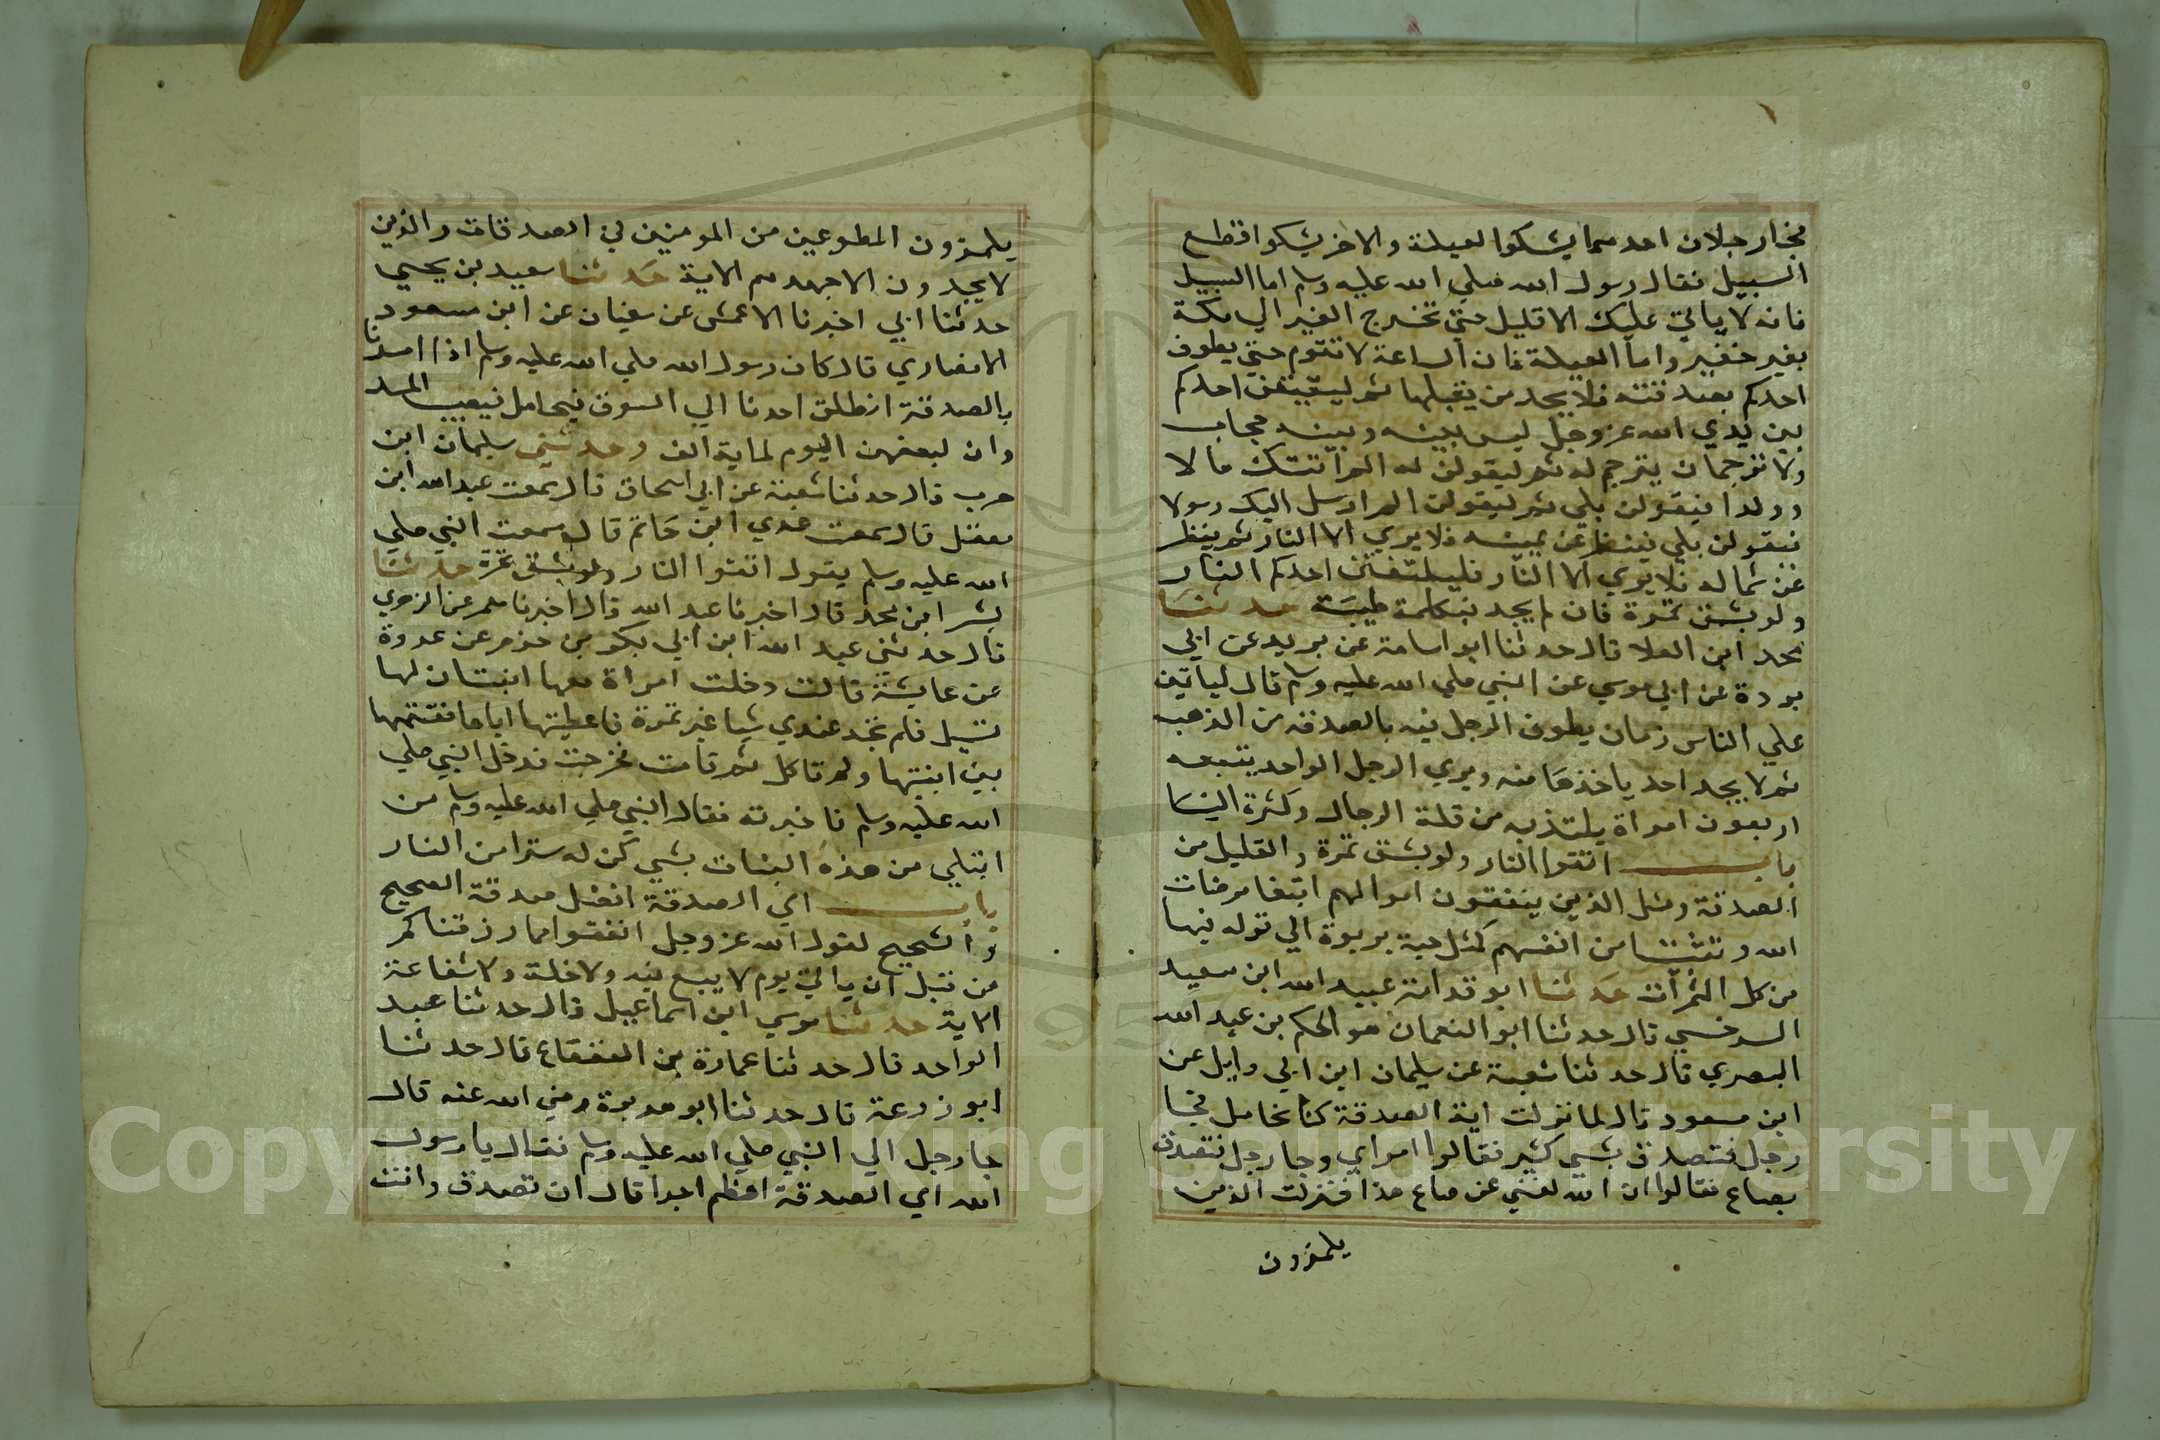 فجاه رجلان احدهما يشكوا لعيلة والاخر يشكوا قطع
السبيل فقال رسول الله صلي الله عليه وسلم اما السبيل
فانه لا ياتي عليك الا قليل حتي تخرج العير الي مكة
بغير خفير واما العيلة فان الساعة لا تقوم حتي يطوف
احدكم بصدقته فلا يجد من يقبلها ثم ليقفن احدكم
بين يدي الله عز وجل ليس بينه وبينه حجاب
ولا ترجمان يترجم له ثم ليقولن له الم اتتك مالا
وولدا فيقولن بلي ثم ليقولن الم ارسل اليك رسولا
فيقولن بلي فينظر عن يمينه فلا يري الا النار ثم ينظر
عن شماله فلا يري الا النار فليتقين احدكم النار
ولو بشق تمرة فان لم يجد فبكلمة طيبة حدثنا
محمد ابن العلا قال حدثنا ابو اسامة عن بريد عن ابي
بردة عن ابي موسي عن النبي صلي الله عليه وسلم قال لياتين
علي الناس زمان يطوف الرجل فيه بالصدقه من الذهب
ثم لا يجد احد ياخذها منه ويري الرجل الواحد يتبعه
اربعون امراة يلتذ به من قلة الرجال وكثرة النسا
باب اتقوا النار ولو بشق تمرة والقليل من
الصدقة ومثل الذين ينفقون اموالهم ابتغا مرضات
الله وتثبتا من انفسهم كمثل جبة بربوة الي قوله فيها
من كل الثمرات حدثنا ابو قدامة عبيد الله ابن سعيد
السرخسي قال حدثنا ابو النعمان هو الحكم بن عبد الله
البصري قال حدثنا شعبة عن سليمان ابن ابي وايل عن
ابن مسعود قال لما نزلت اية الصدقة كنا نحامل فجا
رجل فتصدق بشي كثير فقالوا امراي وجا رجل فتصدق
بصاع فقالوا ان الله لغني عن صاع هذا فنزلت الذين
يلمزون
يلمزون المطوعين من المومنين في الصدقات والذين
لا يجدون الا جهدهم الاية حدثنا سعيد بن يحيي
حدثنا ابي اخبرنا الاعمش عن سفيان عن ابن مسعود
الانصاري قال كان رسول الله صلي الله عليه وسلم اذا امرنا
بالصدقة انطلق احدنا الي السوق فيحامل فيصيب المد
وان لبعضهن اليوم لماية الف وحدثني سليمان ابن
حرب قال حدثنا شعبة عن ابي اسحاق قال سمعت عبد الله ابن
معقل قال سمعت عدي ابن حاتم قال سمعت النبي صلي
الله عليه وسلم يقول اتقوا النار ولو بشق تمرة حدثنا
بشر ابن محمد قال اخبرنا عبد الله قال اخبرنا معمر عن الزهري
قال حدثني عبد الله ابن ابي بكر بن حزم عن عروة
عن عايشة قالت دخلت امراة معها ابنتان لها
تسيل فلم تجد عندي شيا غير تمرة فاعطيتها اياها فقسمتها
بين ابنتيها ولم تاكل ثم قامت فخرجت فدخل النبي صلي
الله عليه وسلم فاخبرته فقال النبي صلي الله عليه وسلم من
ابتلي من هذه البنات بشي كن له سترا من النار
باب اي الصدقة افضل صدقة الصحيح
والشحيح لقول الله عز وجل انفقوا مما رزقناكم
من قبل ان ياتي يوم لا بيع فيه ولا خلة ولا شفاعة
الاية حدثنا موسي ابن اسماعيل قال حدثنا عبد
الواحد قال حدثنا عمارة بن القعقاع قال حدثنا
ابو زرعة قال حدثنا ابو هريرة رضي الله عنه قال
جا رجل الي النبي صلي الله عليه وسلم فقال يا رسول
الله اي الصدقة اعظم اجرا قال ان تصدق وانت